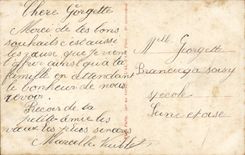 Chère Georgette
Merci de tes bons
souhaits c'est aussi
les vœux que je
offre ainsi qu'à ta
famille en attendant
le bonheur de nous
revoir.
Recois de ta
petite amie les
vœux les plus sincères
Marcelle
Melle Georgette
école
Seine et oise